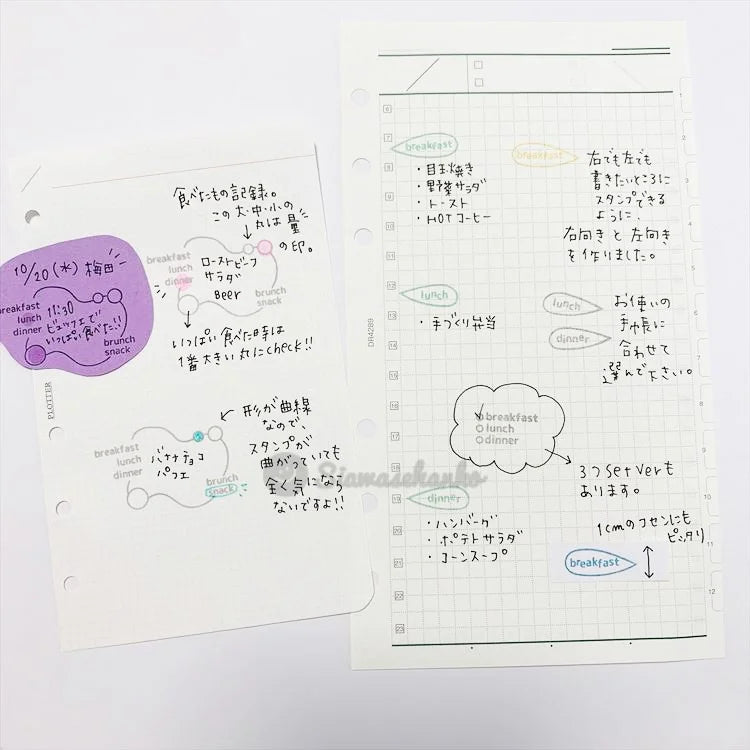 食べたもの記録。
この大・中・小の
丸は量
の印。
breakfast
lunch
dinner
ローストビーフ
サラダ
Beer
brunch
snack
いっぱい食べた時は
1番大きい丸にcheck!!
10/20(水) 梅田
breakfast
lunch
dinner
11:30
ビュッフェで
いっぱい食べた!!
brunch
snack
PLOTTER
形が曲線
なので、
スタンプが
曲がっていても
全く気になら
ないですよ!!
breakfast
lunch
dinner
バナナチョコ
パフェ
brunch
snack
Siawasehanko
6
7
8
9
10
11
12
13
14
15
16
17
18
19
20
21
22
23
1
2
3
5
6
7
8
9
10
11
12
DR4289
breakfast
・目玉焼き
・野菜サラダ
・トースト
・HOTコーヒー
breakfast
右でも左でも
書きたいところに
スタンプできる
ように、
右向きと左向き
を作りました。
lunch
・手づくり弁当
lunch
dinner
お使いの
手帳に
合わせて
選んで下さい。
breakfast
lunch
dinner
3つset verも
あります。
dinner
・ハンバーグ
・ポテトサラダ
・コーンスープ
1cmのフセンにも
ピッタリ
breakfast